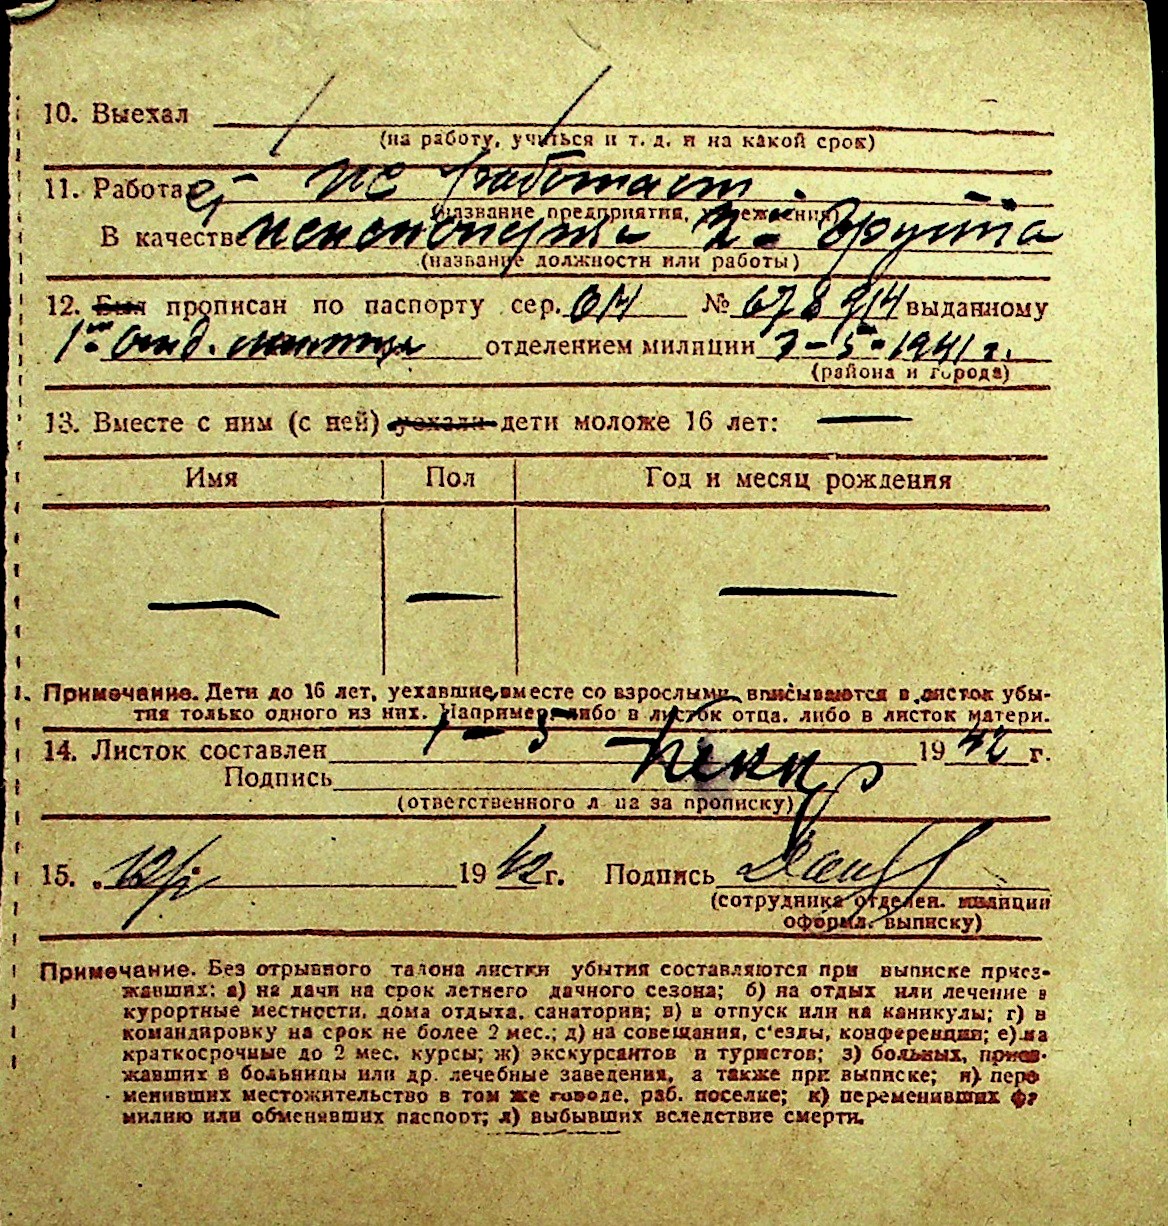 10. Выехал
(на работу, учиться и т. д. и на какой срок)
11. Работает не работает
(название предприятия, учреждения)
В качестве пенсионерка 2й группа
(название должности или работы)
12. Был прописан по паспорту сер. ОМ № 678914 выданному
1м отд. милиции отделением милиции 3-5-1941 г.
(района и города)
13. Вместе с ним (с ней) уехали дети моложе 16 лет: —
Имя Пол Год и месяц рождения
— — —
Примечание. Дети до 16 лет, уехавшие вместе со взрослыми, вписываются в листок убы-
тия только одного из них. Например, либо в листок отца, либо в листок матери.
14. Листок составлен 1-3 1942 г.
Подпись
(ответственного лица за прописку)
15. 1942 г. Подпись
(сотрудника отделен. милиции
оформл. выписку)
Примечание. Без отрывного талона листки убытия составляются при выписке приез-
жавших: а) на дачи на срок летнего дачного сезона; б) на отдых или лечение в
курортные местности, дома отдыха, санатории; в) в отпуск или на каникулы; г) в
командировку на срок не более 2 мес.; д) на совещания, с'езды, конференции; е) на
краткосрочные до 2 мес. курсы; ж) экскурсантов и туристов; з) больных, приез-
жавших в больницы или др. лечебные заведения, а также при выписке; и) пере
менивших местожительство в том же городе, раб. поселке; к) переменивших фа
милию или обменявших паспорт; л) выбывших вследствие смерти.